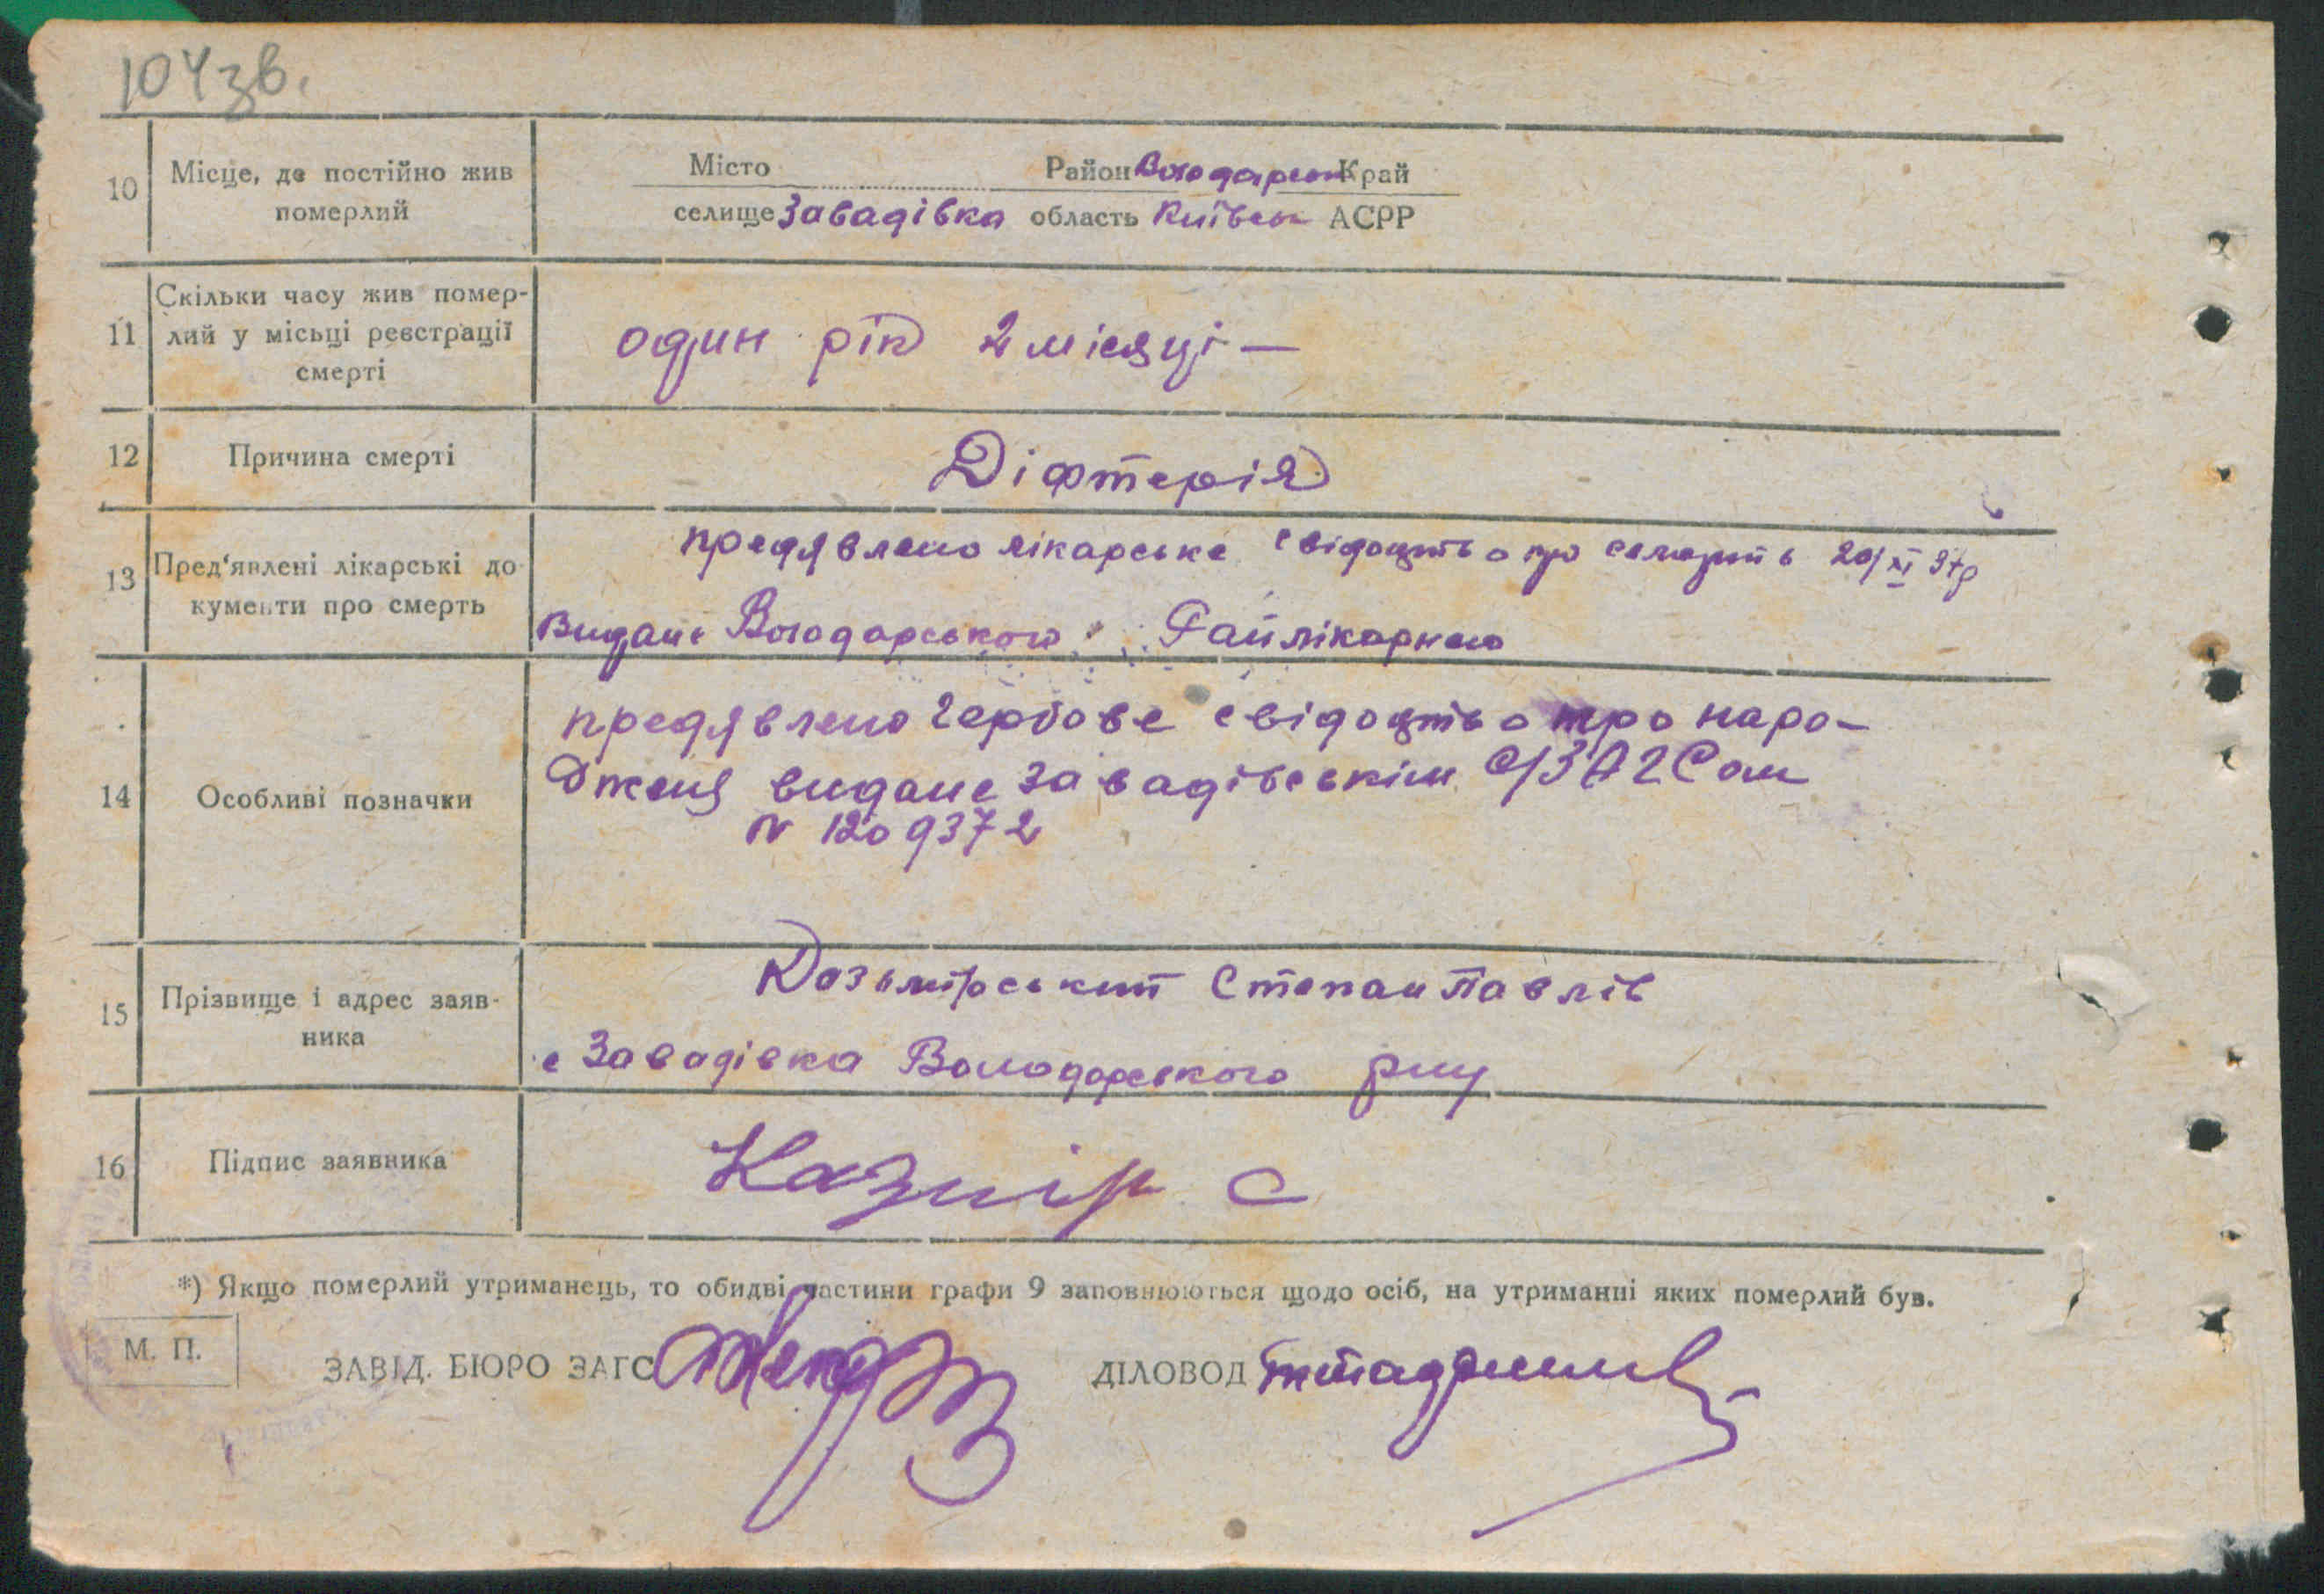 104зв.
10 Місце, де постійно жив
померлий
Місто Район Володарськ Край
селище Завадівка область Київськ АСРР
11 Скільки часу жив помер-
лий у місьці реєстрації
смерті
один рік 2 місяці —
12 Причина смерті
Діфтерія
13 Пред'явлені лікарські до-
кументи про смерть
предявлено лікарське свідоцтво про смерть 20/XI 37р
видане Володарського Райлікарнею
14 Особливі позначки
предявлено гербове свідоцтво про наро-
дженя видане Завадівським С/ЗАГСом
N 1209372
15 Прізвище і адрес заяв-
ника
Казьмірський Степан Павлів
с Завадівка Володарського р-ну
16 Підпис заявника
Казмір С
*) Якщо померлий утриманець, то обидві частини графи 9 заповнюються щодо осіб, на утриманні яких померлий був.
М. П.
ЗАВІД. БЮРО ЗАГС
ДІЛОВОД